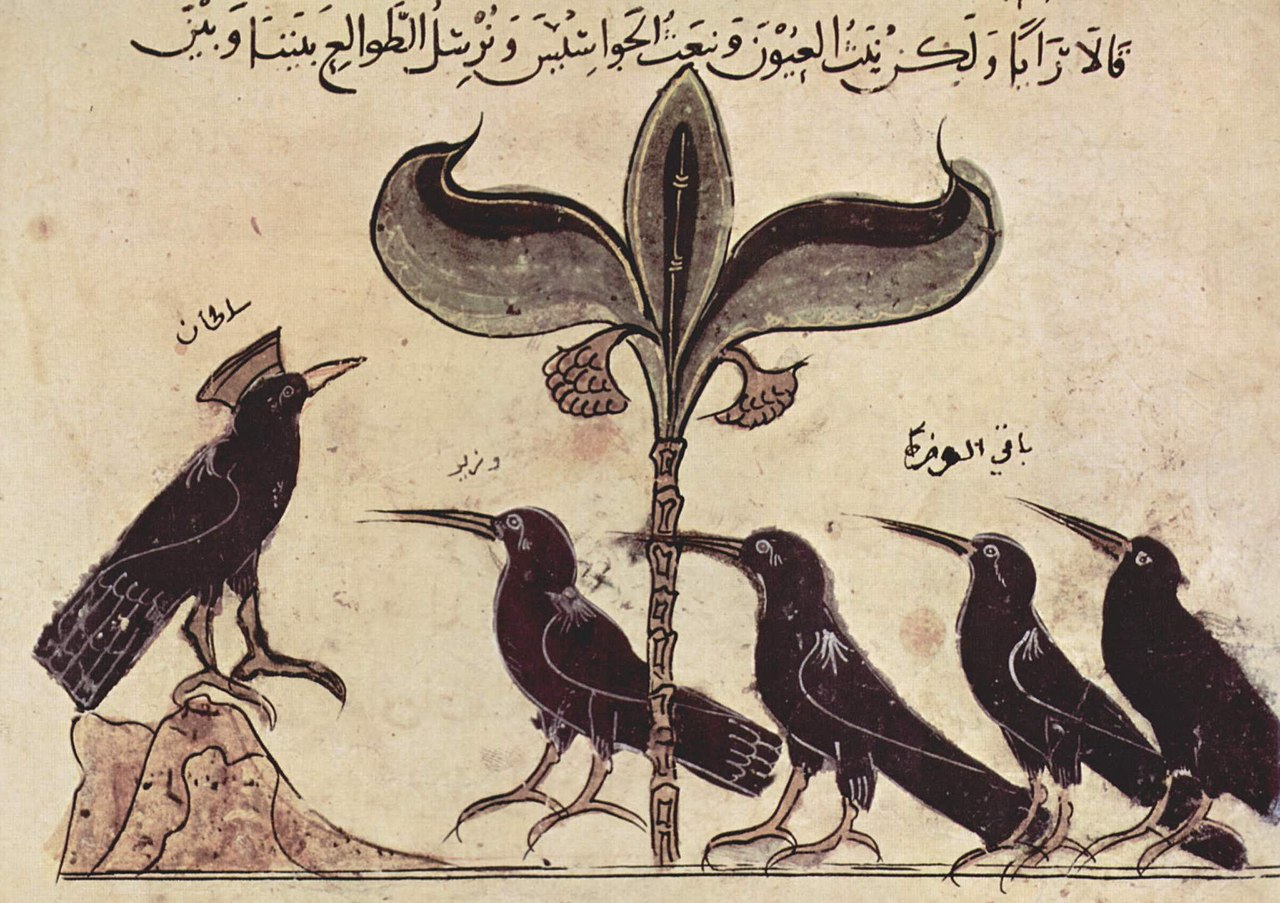 قَالَا رَايًا وَلَكِنْ نَبُثُّ العُيُوْنَ وَنبعَثُ الجَوَاسِيسَ وَنُرْسِلُ الطَّوالِعَ بَيْنَنَا وَبَيْنَ
سلطان
وزير
باقي